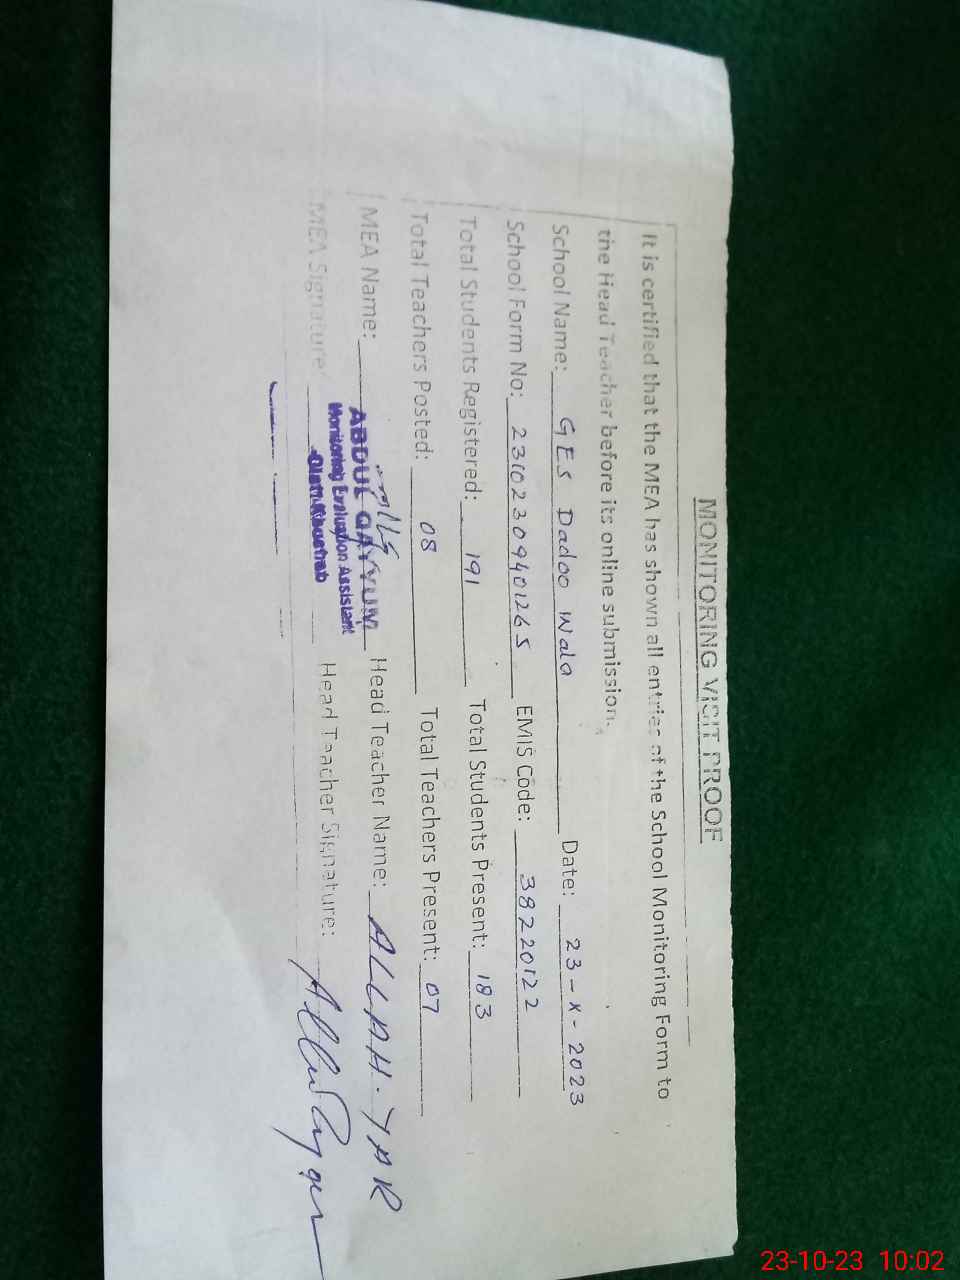 MONITORING VISIT PROOF
It is certified that the MEA has shown all entries of the School Monitoring Form to
the Head Teacher before its online submission.
School Name: GES Dadoo Wala Date: 23-X-2023
School Form No: 23102309401265 EMIS Code: 38220122
Total Students Registered: 191 Total Students Present: 183
Total Teachers Posted: 08 Total Teachers Present: 07
MEA Name: ABDUL QAYYUM Head Teacher Name: ALLAH. YAR
Monitoring Evaluation Assistant
MEA Signature: Distt: Khushab Head Teacher Signature:
23-10-23 10:02